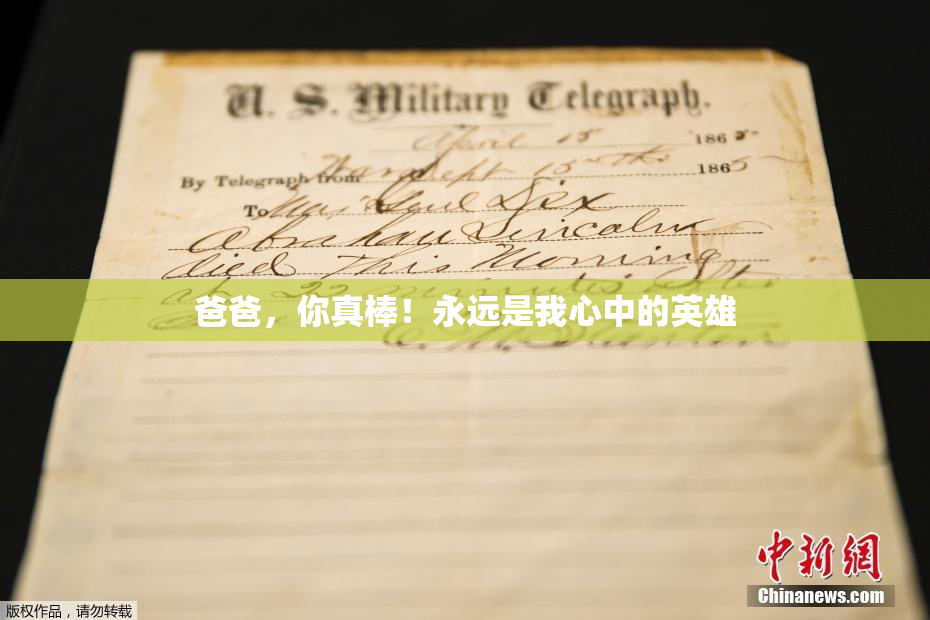 U. S. Military Telegraph.
April 15 1865
By Telegraph from War Dept 15th 1865
To Maj Genl Dix
Abraham Lincoln
died This Morning
at 22 minutes after
爸爸，你真棒！永远是我心中的英雄
E. M. Stanton
中新网
Chinanews.com
版权作品，请勿转载